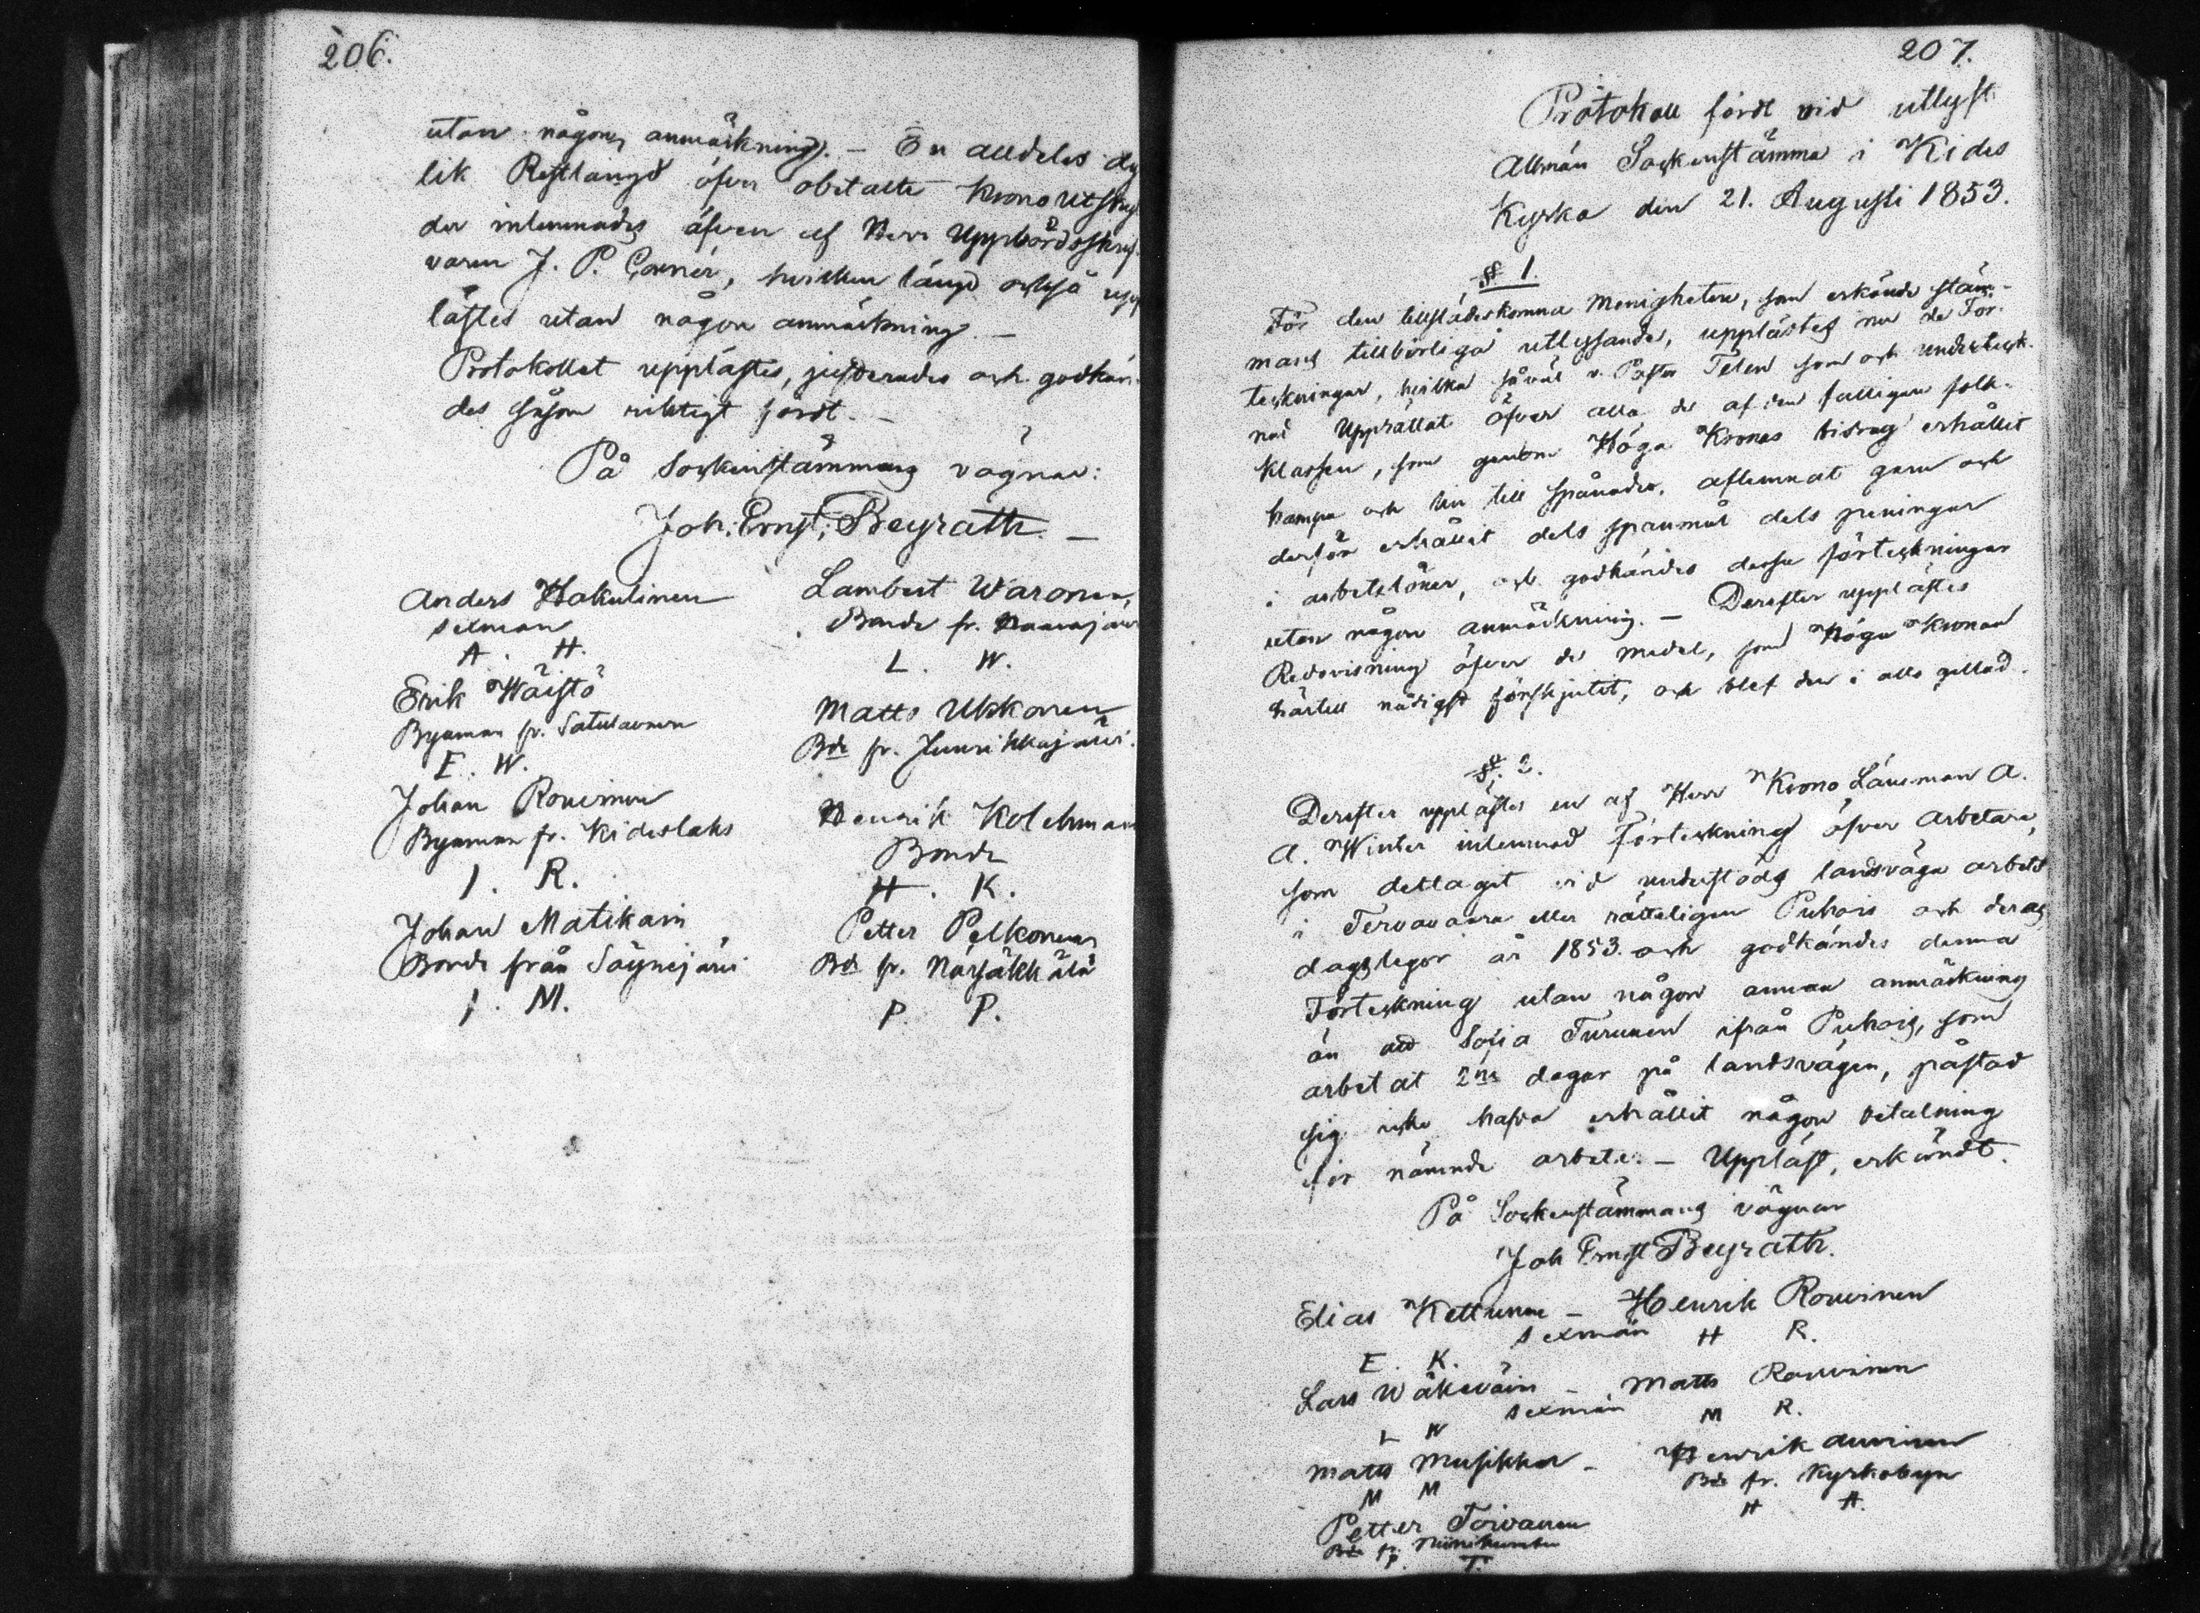 206.
utan någon anmärkning. – En alldeles dy
lik Restlängd öfver obetalte Kronoutsky
der inlemnades äfven af Herr Uppbördsskrif
varen J. P. Cornér, hvilken längd också upp
lästes utan någon anmärkning. –
Protokollet upplästes, justerades och godkän-
des såsom riktigt fördt. –
På Sockenstämmans vägnar:
Joh: Ernst: Beyrath. –
Anders Hakulinen
sexman
A. H.
Erik Wäistö
Byaman fr. Satulavuori
E. W.
Johan Rouvinen
Byaman fr. Kideslaks
J. R.
Johan Matikain
Bonde från Säynejärvi
J. M.
Lambert Waronen,
Bonde fr.
L. W.
Matts Ukkonen
Bde fr. Juurikkajärvi.
Henrik Kolehmain
Bonde
H. K.
Petter Pelkonen
Bde fr. Närsäkkälä
P. P.
207.
Protokoll fördt vid utlyst
Allmän Sockenstämma i Kides
Kyrka den 21. Augusti 1853.
§ 1.
För den tillstädeskomna Menigheten, som erkände stäm-
mans tillbörliga utlysande, upplästes nu de För-
teckningar, hvilka såväl v. Pastor Telen som och underteck-
nad Upprättat öfver alla de af den fattigare folk-
klassen, som genom Höga Kronas bidrag erhållit
hampa och lin till spånader, aflemnat garn och
derför erhållit dels spanmål dels peningar
i arbetslöner, och godkändes dessa förteckningar
utan någon anmärkning. – Derefter upplästes
Redovisning öfver de medel, som Höga Kronan
härtill nådigst förskjutit, och blef den i allo gillad.
§. 2.
Derefter upplästes en af Herr Krono Länsman A.
A. Winter inlemnad Förteckning öfver Arbetare,
som deltagit vid understöds landsväga arbet
i Tervavaara eller rätteligen Puhois och deras
dagslegor år 1853. och godkändes denna
Förteckning utan någon annan anmärkning
än att Sofia Turunen ifrån Puhois, som
arbetat 2ne dagar på landsvägen, påstod
sig icke hafva erhållit någon betalning
för nämnde arbete. – Uppläst, erkändt.
På Sockenstämmans vägnar
Joh Ernst Beyrath.
Elias Kettunen – Henrik Rouvinen
sexmän H R.
E. K.
Lars Wäkeväin – Matts Rouvinen
sexmän M R.
L W
Matts Musikka – Henrik Auvinen
M M Bde fr. Kyrkobyn
H A.
Petter Toivanen
Bde fr. Niinikumbu
P. T.